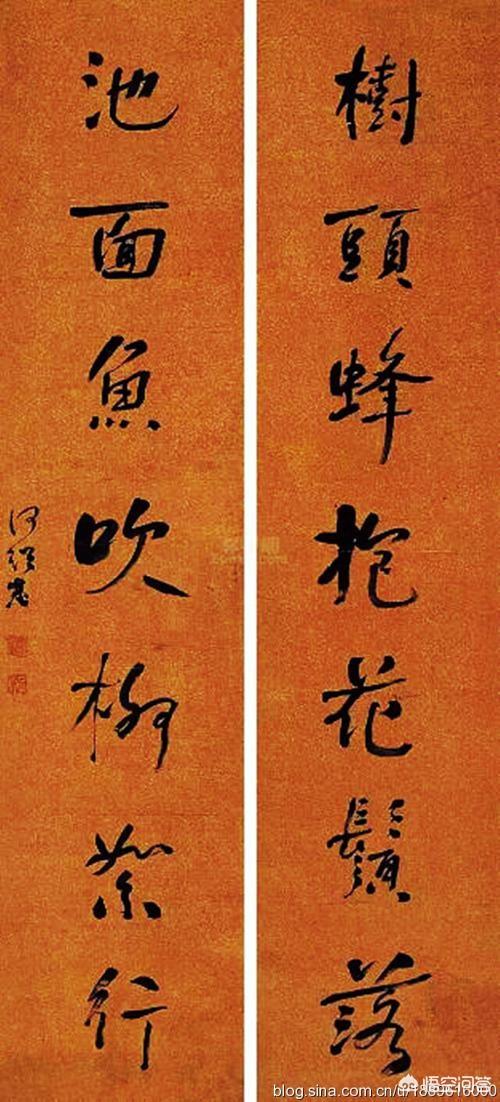 樹頭蜂抱花鬚落
池面魚吹柳絮行
何紹基
悟空问答
blog.sina.com.cn/u/1889618000